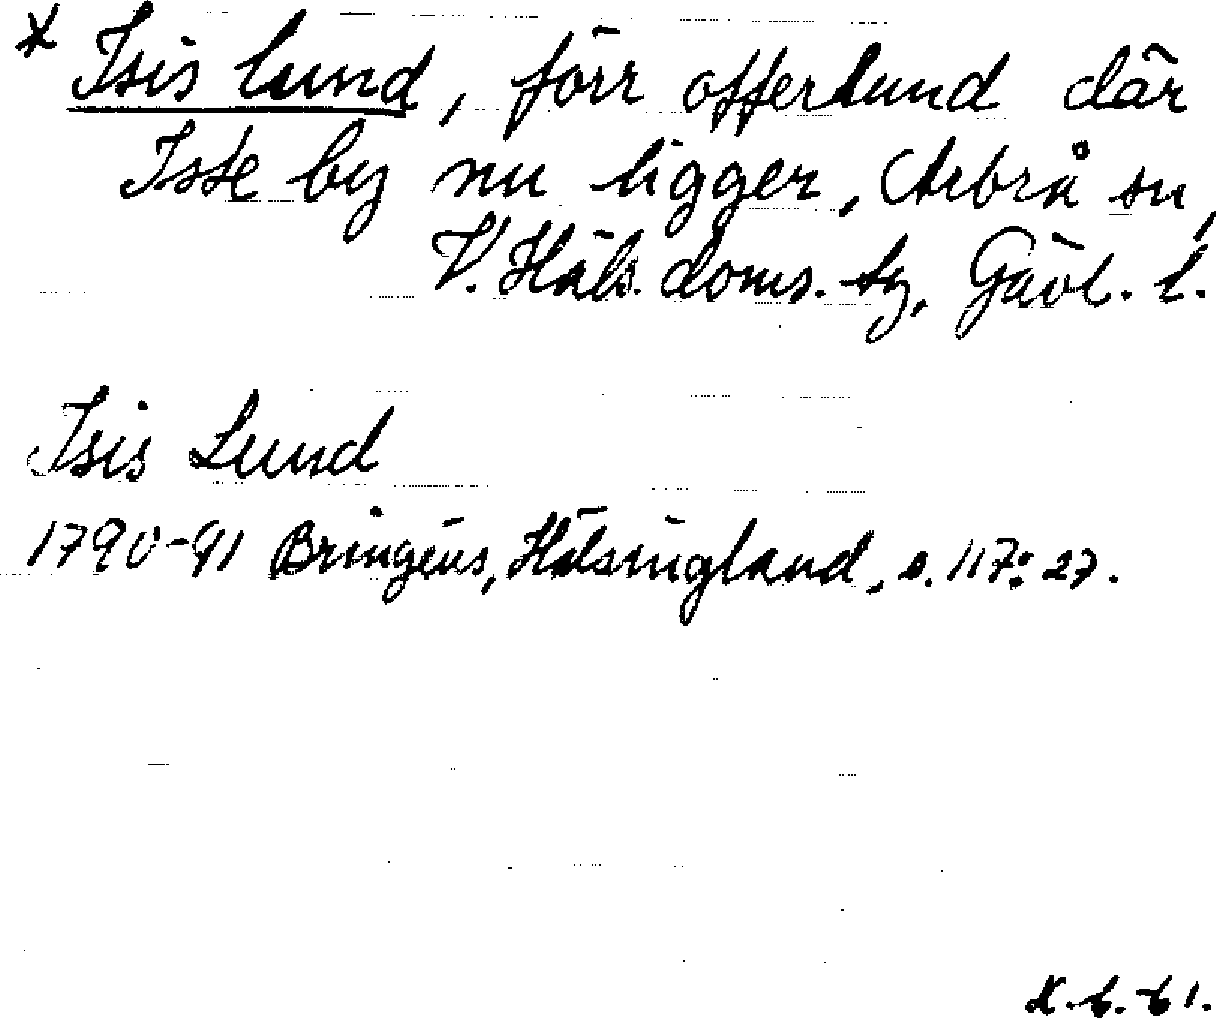 * Isis lund, förr offerlund där
Iste by nu ligger, Arbrå sn,
V. Häls. doms. tg, Gävl. l.
Isis Lund
1790-91 Bringéus, Hälsingland, s. 117: 27.